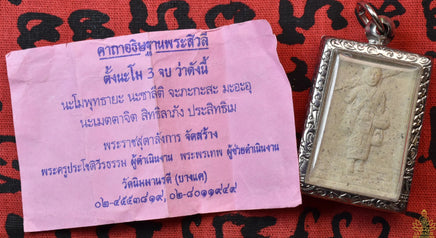 คาถาอธิษฐานพระสิวลี
ตั้งนะโม 3 จบ ว่าดังนี้
นะโมพุทธายะ นะชาลีติ จะภะกะสะ มะอะอุ
นะเมตตาจิต สิทธิลาภัง ประสิทธิเม
พระราชสุตาลังการ จัดสร้าง
พระครูประโชติวีรธรรม ผู้ดำเนินงาน พระพรเทพ ผู้ช่วยดำเนินงาน
วัดนิมมานรดี (บางแค)
๐๒-๔๕๕๓๘๑๙, ๐๒-๘๐๑๑๙๔๙